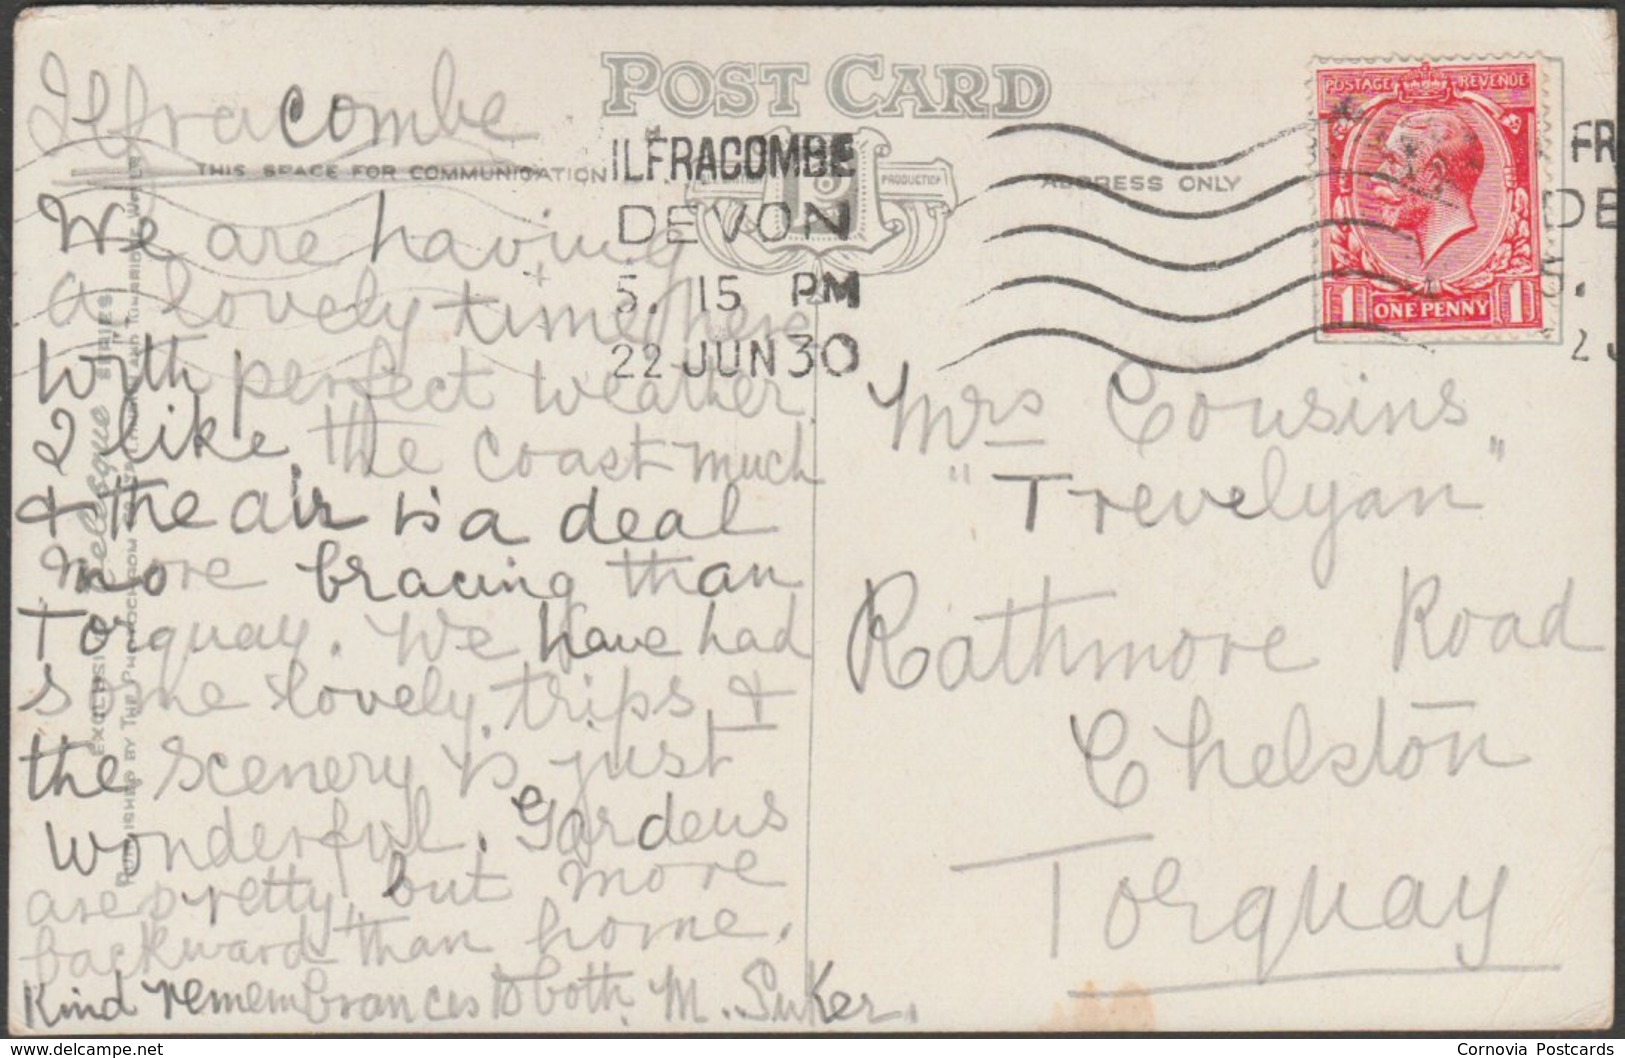 POST CARD
THIS SPACE FOR COMMUNICATION
ADDRESS ONLY
PRODUCTION
ILFRACOMBE
DEVON
5. 15 PM
22 JUN 30
POSTAGE REVENUE
1 ONE PENNY 1
FR
DE
5.
2 J
Ilfracombe
We are having
a lovely time here
with perfect weather.
I like the coast much
& the air is a deal
more bracing than
Torquay. We have had
some lovely trips &
the scenery is just
wonderful. Gardens
are pretty, but more
backward than home.
Kind remembrances to both. M. Suker.
Mrs Cousins
"Trevelyan"
Rathmore Road
Chelston
Torquay
EXCLUSIVE Celesque SERIES
PUBLISHED BY THE PHOTOCHROM CO. LTD. LONDON AND TUNBRIDGE WELLS
Cornovia Postcards